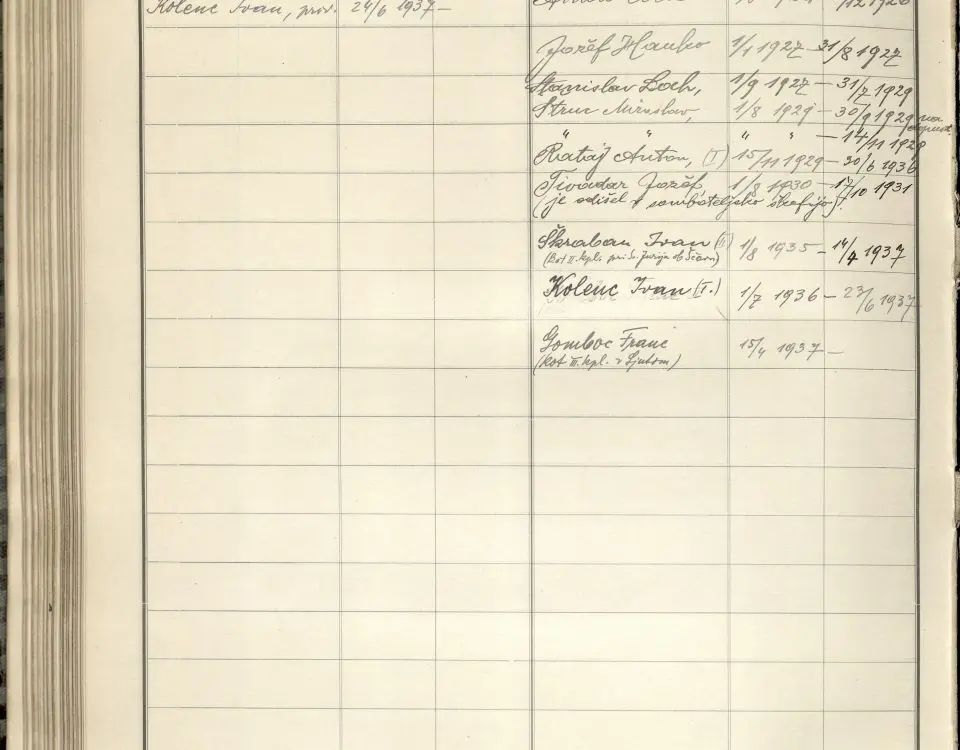 Kolenc Ivan, prov. 24/6 1937 —
/12 1926
Jožef Hauko 1/1 1927 — 31/8 1927
Stanislav Loch, 1/9 1927 — 31/7 1929
Struc Miroslav, 1/8 1929 — 30/9 1929 na dopust.
" " " " — 14/11 1929
Rataj Anton, (I) 15/11 1929 — 30/6 1936
Tivadar Jožef, 1/8 1930 — 17/10 1931
(je odišel v sombateljsko škofijo).
Škraban Ivan (II) 1/8 1935 — 14/4 1937
(kot II. kpl. pri Sv. Juriju ob Ščavn)
Kolenc Ivan (I.) 1/7 1936 — 23/6 1937
Gomboc Franc 15/4 1937 —
(kot II. kpl. v Ljutom)